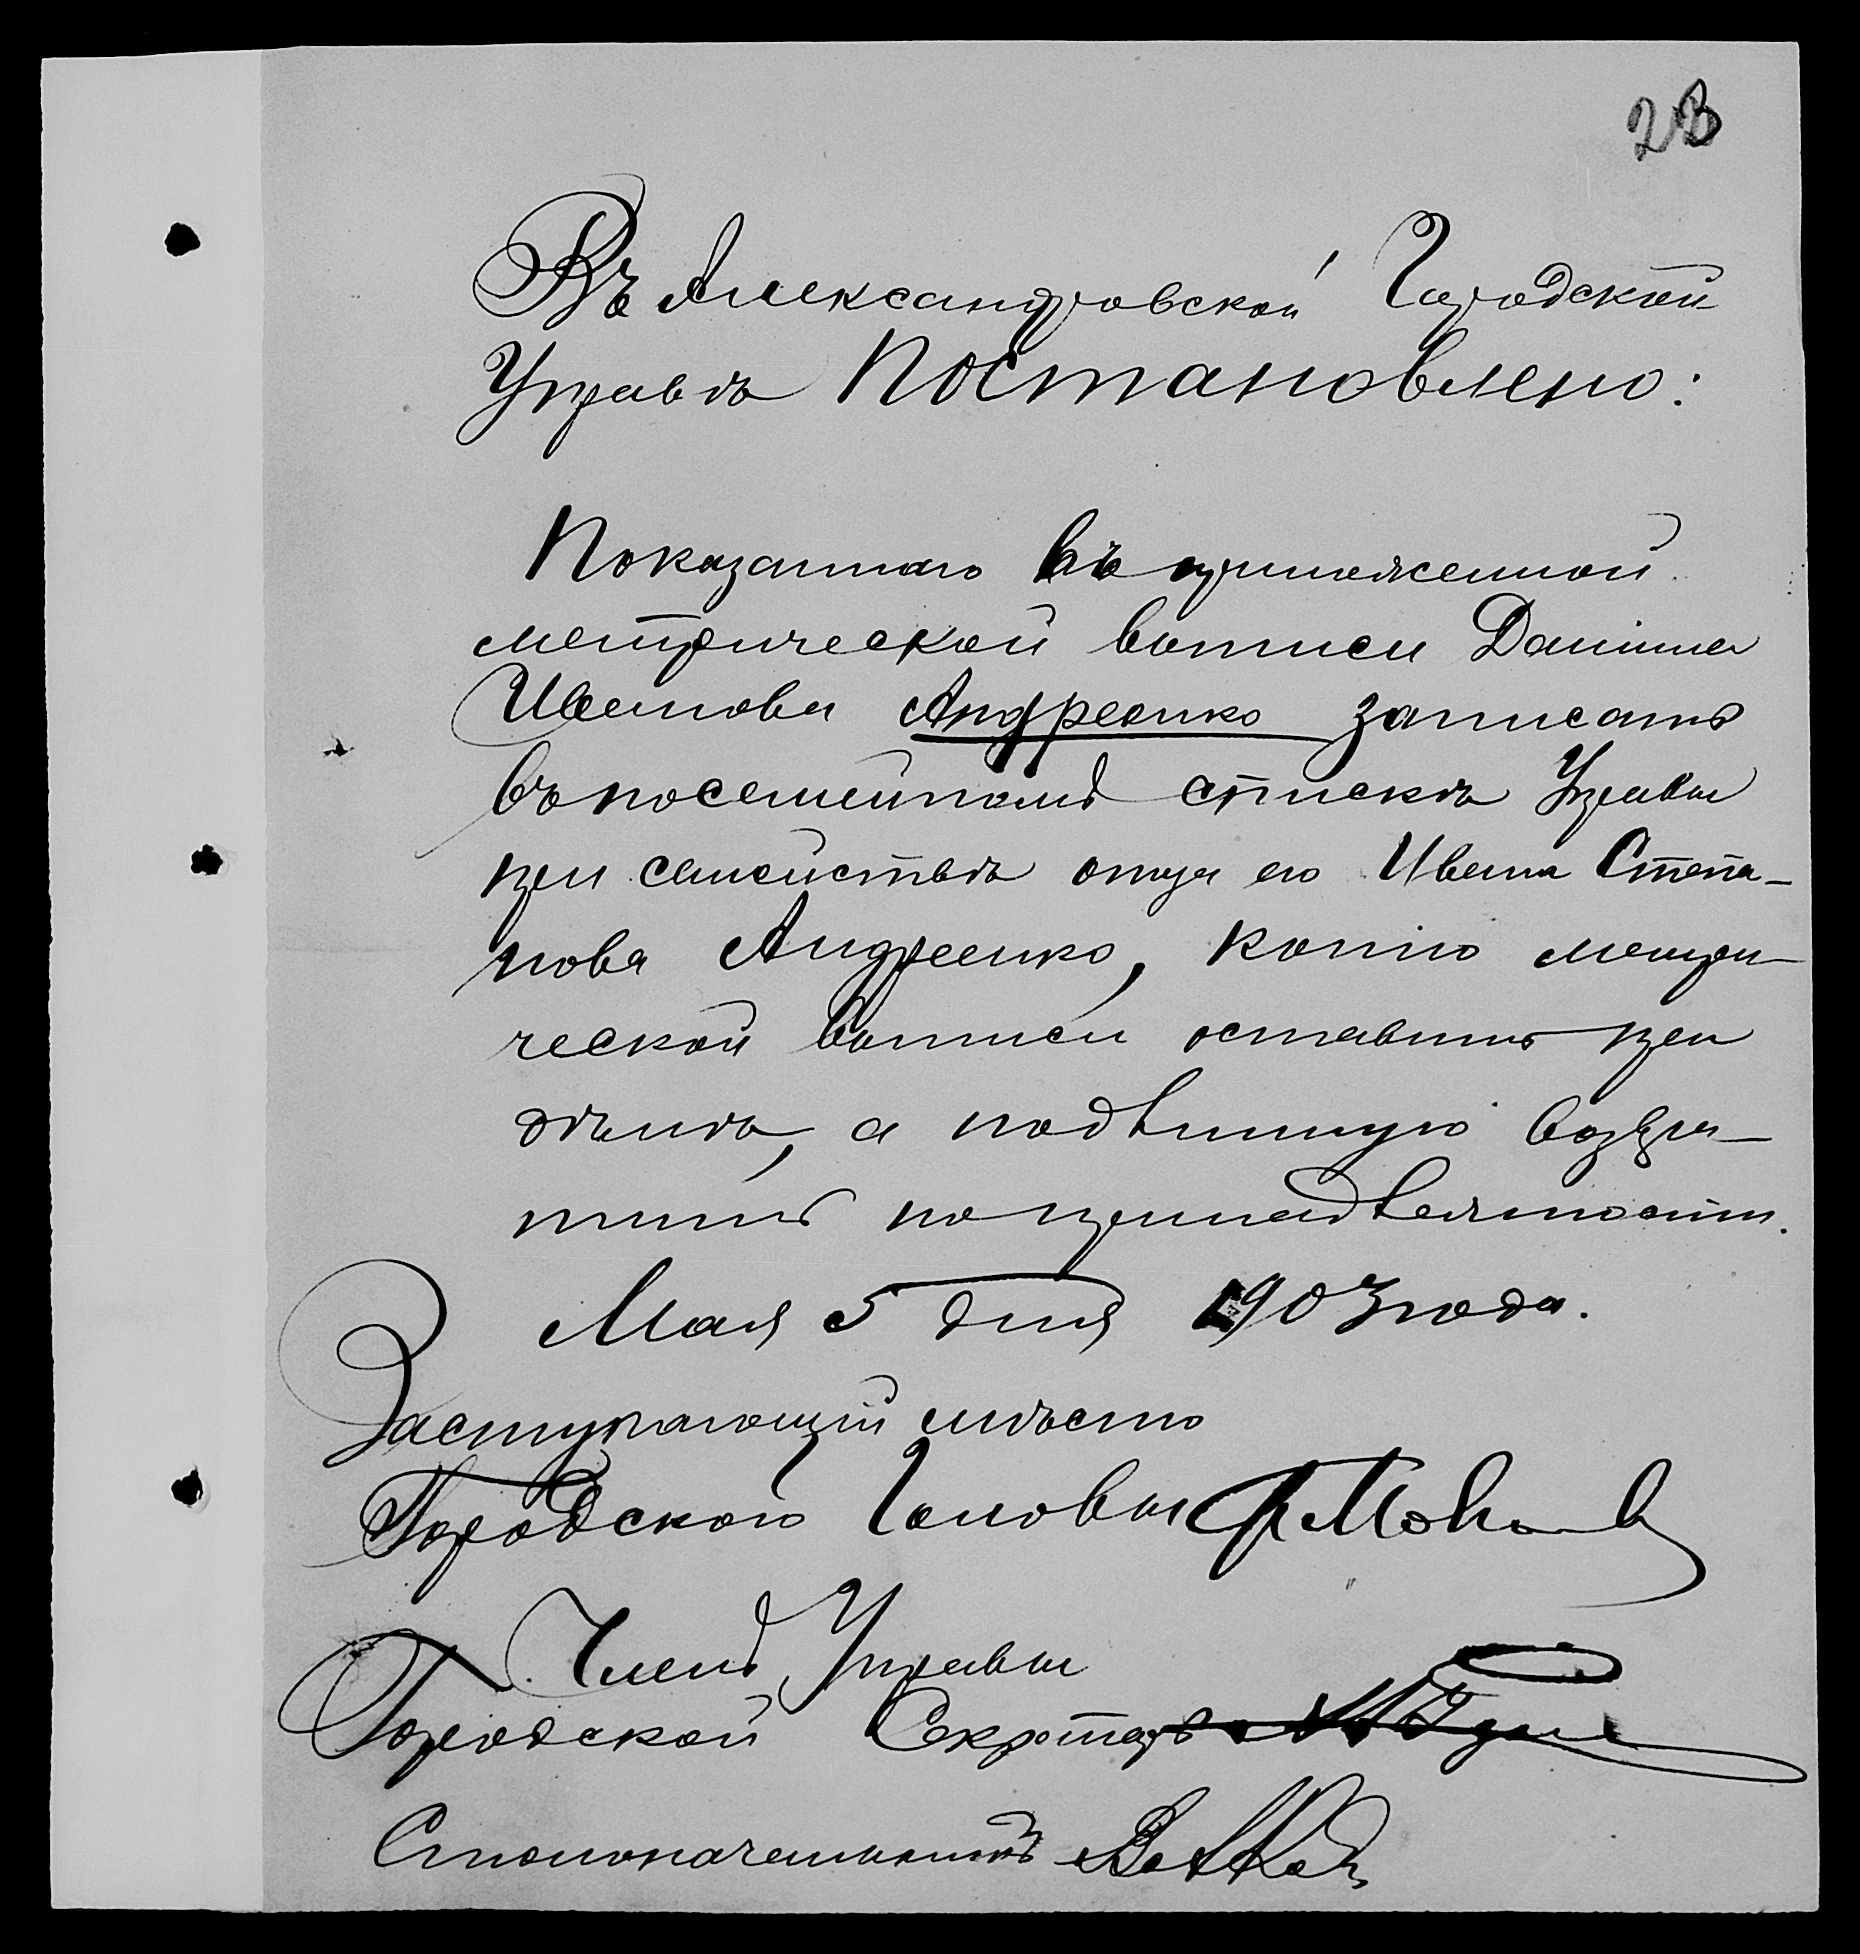 23
Въ Александровской Городской
Управѣ Постановлено:
Показаннаго въ приложенной
метрической выписи Даніила
Иванова Андреенко записать
въ посемейномъ спискѣ Управы
при семействѣ отца его Ивана Степа-
нова Андреенко, копію метри-
ческой выписи оставить при
дѣлѣ, а подлинную возвра-
тить по принадлежности.
Мая 5 дня 1903 года.
Заступающій мѣсто
Городского Головы
Членъ Управы
Городской Секретарь
Столоначальникъ